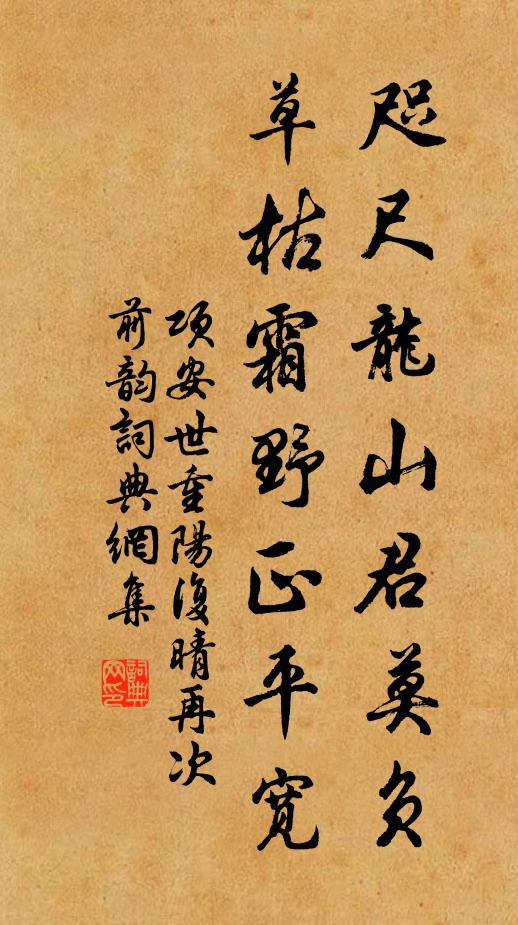 咫尺龍山君莫負
草枯霜野正平寬
項安世重陽復晴再次
前韵詞典網集
詞典
网印